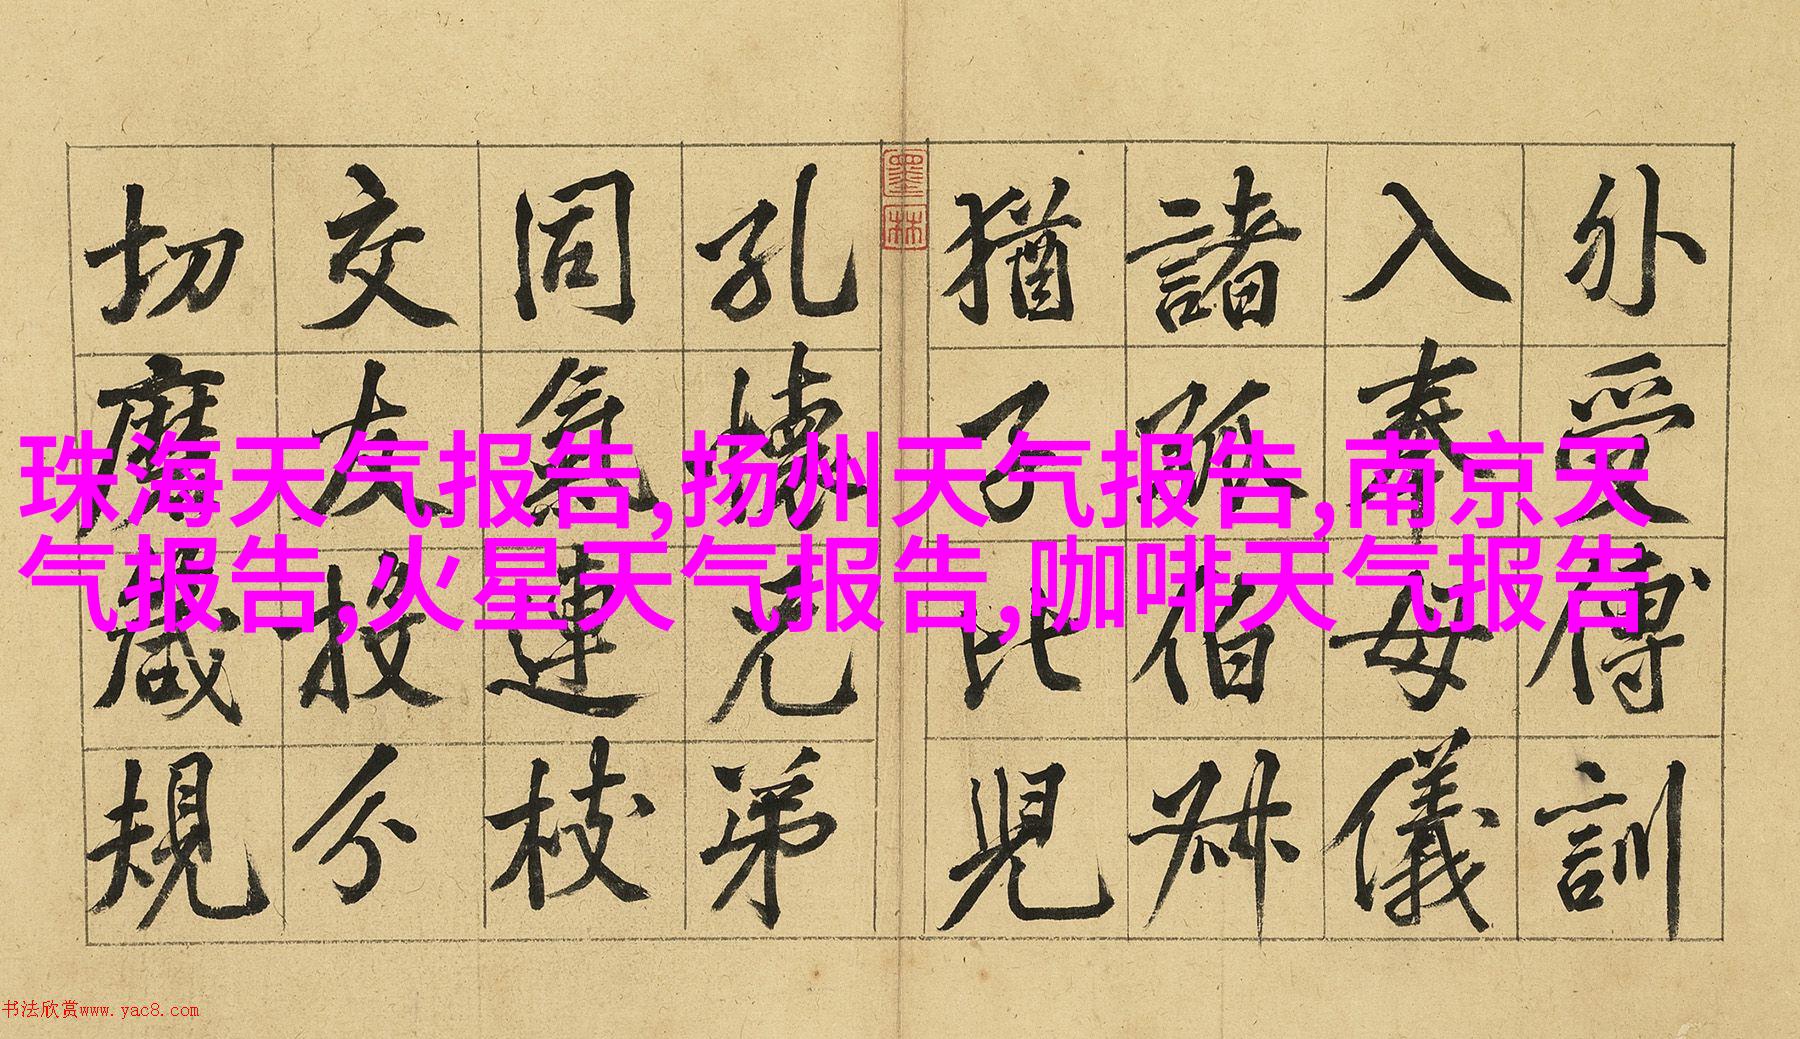 外受傅訓
入奉母儀
諸姑伯叔
猶子比兒
墨林
孔懷兄弟
同氣連枝
交友投分
切磨箴規
珠海天气报告,扬州天气报告,南京天
气报告,火星天气报告,咖啡天气报告
书法欣赏www.yac8.com